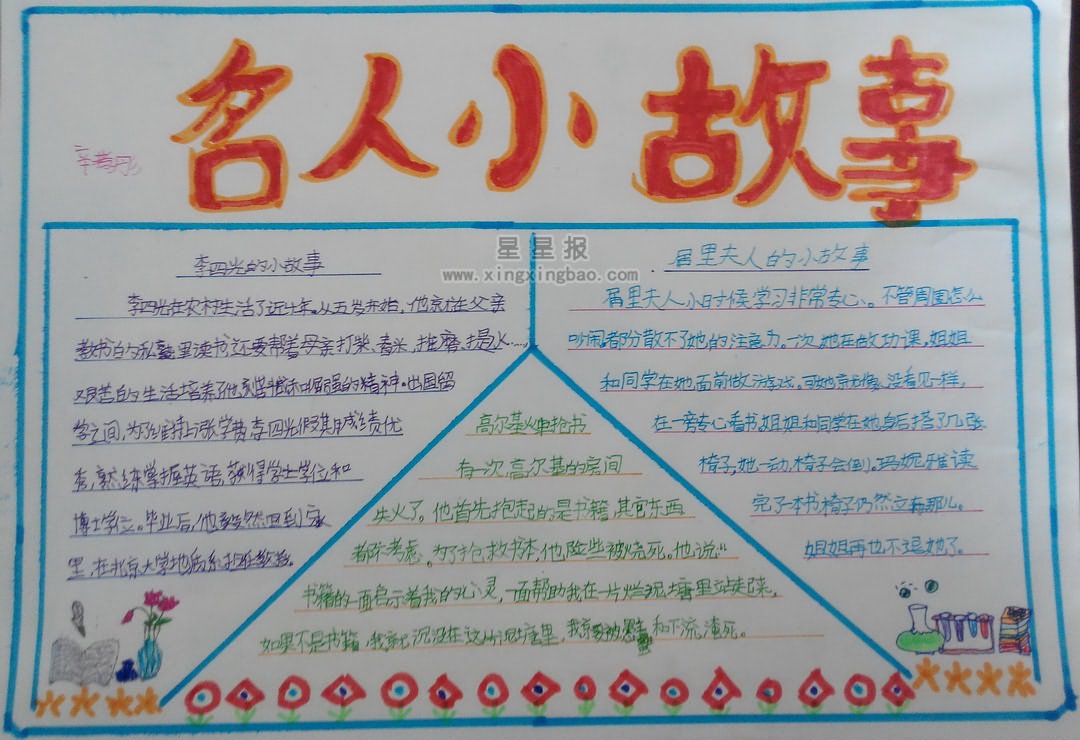 名人小故事
星星报
www.xingxingbao.com
李四光的小故事
李四光在农村生活了近十年。从五岁开始,他就在父亲
教书的私塾里读书,还要帮着母亲打柴、舂米、推磨、提水……,
艰苦的生活培养了他坚强和倔强的精神。出国留
学之间,为了维持上涨学费李四光假其用成绩优
秀,熟练掌握英语,获得学士学位和
博士学位。毕业后,他毅然回到家
里,在北京大学地质系担任教授。
高尔基火中抢书
有一次,高尔基的房间
失火了。他首先抱起的是书籍,其它东西
都不考虑。为了抢救书本,他险些被烧死。他说:“
书籍的一面启示着我的心灵,一面帮助我在一片烂泥塘里站起来,
如果不是书籍,我就沉没在这片泥底里,我就要被 和下流淹死。
居里夫人的小故事
居里夫人小时候学习非常专心。不管周围怎么
吵闹,都分散不了她的注意力。一次,她在做功课,姐姐
和同学在她面前做游戏。可她就像没看见一样,
在一旁专心看书。姐姐和同学在她身后搭了几张
椅子,她一动,椅子会倒。玛妮雅读
完了一本书椅子仍然立在那儿。
姐姐再也不逗她了。